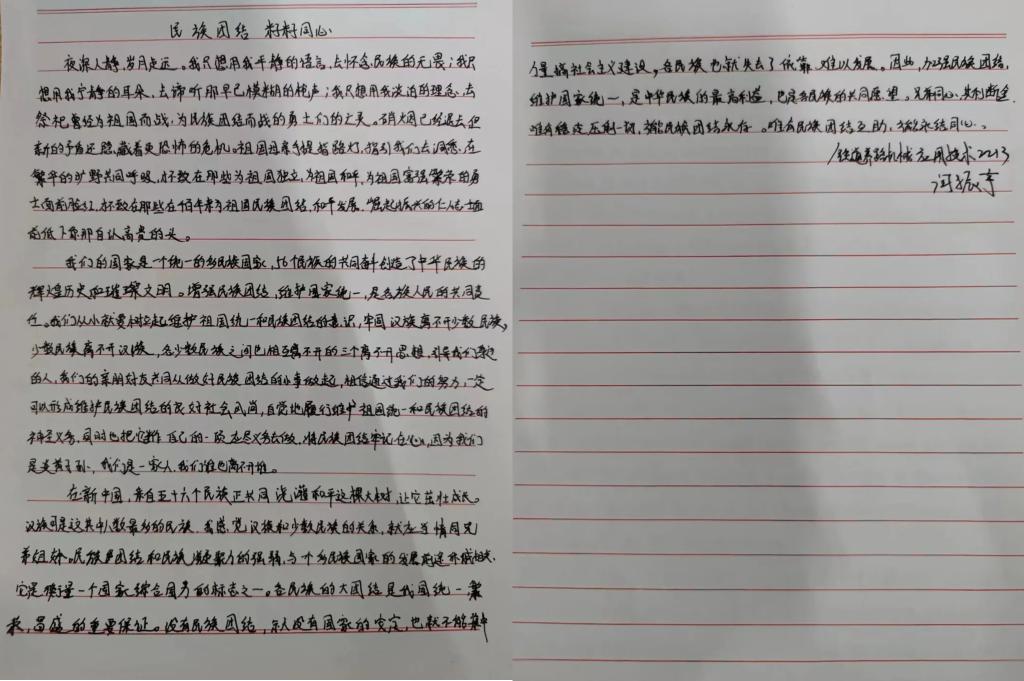 民族团结 籽籽同心
夜深人静,岁月走远。我只想用我平静的语言,去怀念民族的无畏;我只
想用我宁静的耳朵,去谛听那早已模糊的枪声;我只想用我淡泊的理念,去
祭祀曾经为祖国而战,为民族团结而战的勇士们的之灵。硝烟已经退去但
新的矛盾还隐藏着更恐怖的危机。祖国母亲手提着路灯,指引我们去洞悉,在
繁华的旷野共同呼吸,不致在那些为祖国独立,为祖国和平,为祖国富强繁荣的勇
士面前脸红,不致在那些在百年来为祖国民族团结,和平发展,崛起振兴的仁人志士面
前低下你那自认高贵的头。
我们的国家是一个统一的多民族国家,56个民族的共同奋斗创造了中华民族的
辉煌历史和璀璨文明。增强民族团结,维护国家统一,是各族人民的共同责
任。我们从小就要树立起维护祖国统一和民族团结的意识,牢固汉族离不开少数民族,
少数民族离不开汉族,各少数民族之间也相互离不开的三个离不开思想,引导我们身边
的人,我们的亲朋好友共同从做好民族团结的小事做起,相信通过我们的努力,一定
可以形成维护民族团结的良好社会风尚,自觉地履行维护祖国统一和民族团结的
神圣义务,同时也把它当作自己的一项应尽义务去做,将民族团结牢记在心,因为我们
是炎黄子孙,我们是一家人,我们谁也离不开谁。
在新中国,来自五十六个民族正共同浇灌和平这棵大树,让它茁壮成长。
汉族可是这其中人数最多的民族,我感觉汉族和少数民族的关系,就应当情同兄
弟姐妹。民族团结和民族凝聚力的强弱,与一个多民族国家的发展前途休戚相关,
它是衡量一个国家综合国力的标志之一。各民族的大团结是我国统一繁
荣,昌盛的重要保证。没有民族团结,就没有国家的安定,也就不能集中
力量搞社会主义建设,各民族也就失去了依靠,难以发展。因此,加强民族团结,
维护国家统一,是中华民族的最高利益,也是各民族的共同愿望。兄弟同心,其利断金
唯有稳定压倒一切,才能民族团结永存。唯有民族团结互助,才能永结同心。
铁道养路机械应用技术2213